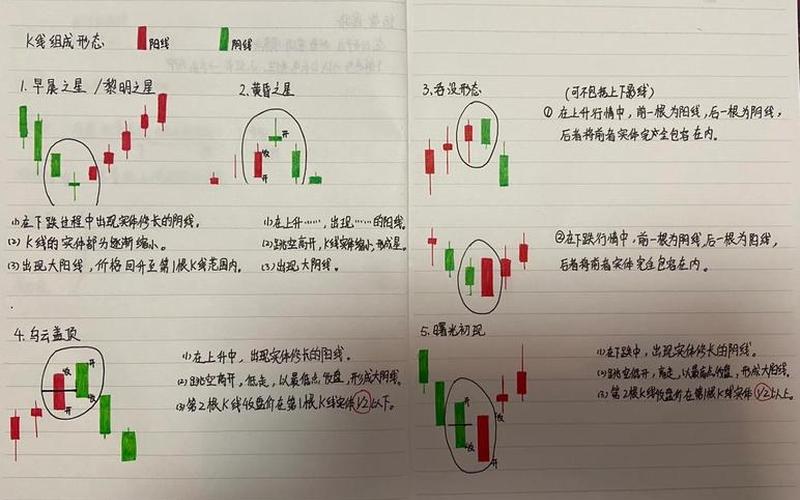 K线组成形态 阳线 阴线
1.早晨之星 /黎明之星
2.黄昏之星
开
收
开
(1)在下跌过程中出现实体修长的阴线。
(2) K线的实体部分逐渐缩小。
(3)出现大阳线,价格回升至第1根K线范围内。
(1)在上升……,出现……的阳线。
(2)跳空高开,K线实体缩小,形成星。
(3)出现大阴线。
3.吞没形态 (可不包括上下影线)
①在上升行情中,前一根为阳线,后一根为阴线,
后者将前者实体完全包容在内。
②在下跌行情中,前一根为阴线,后一根为阳线,
后者将前者实体完全包容在内。
4.乌云盖顶
开
收
收
开
(1)在上升中,出现实体修长的阳线。
(2)跳空高开,低走,以最低点收盘,形成大阴线。
(3)第2根K线收盘价在第1根K线实体1/2以下。
5.曙光初现
开
收
开
(1)在下跌中,出现实体修长的阴线。
(2)跳空低开,高走,以最高点收盘,形成大阳线。
(3)第2根K线收盘价在第1根K线实体1/2以上。